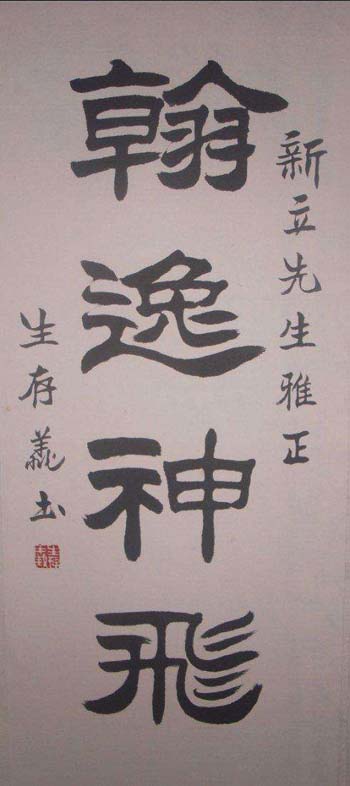 新立先生雅正
翰逸神飛
生存義书